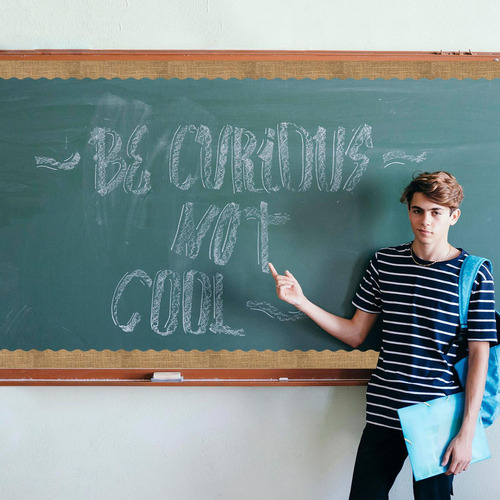 BE CURIOUS
NOT
COOL